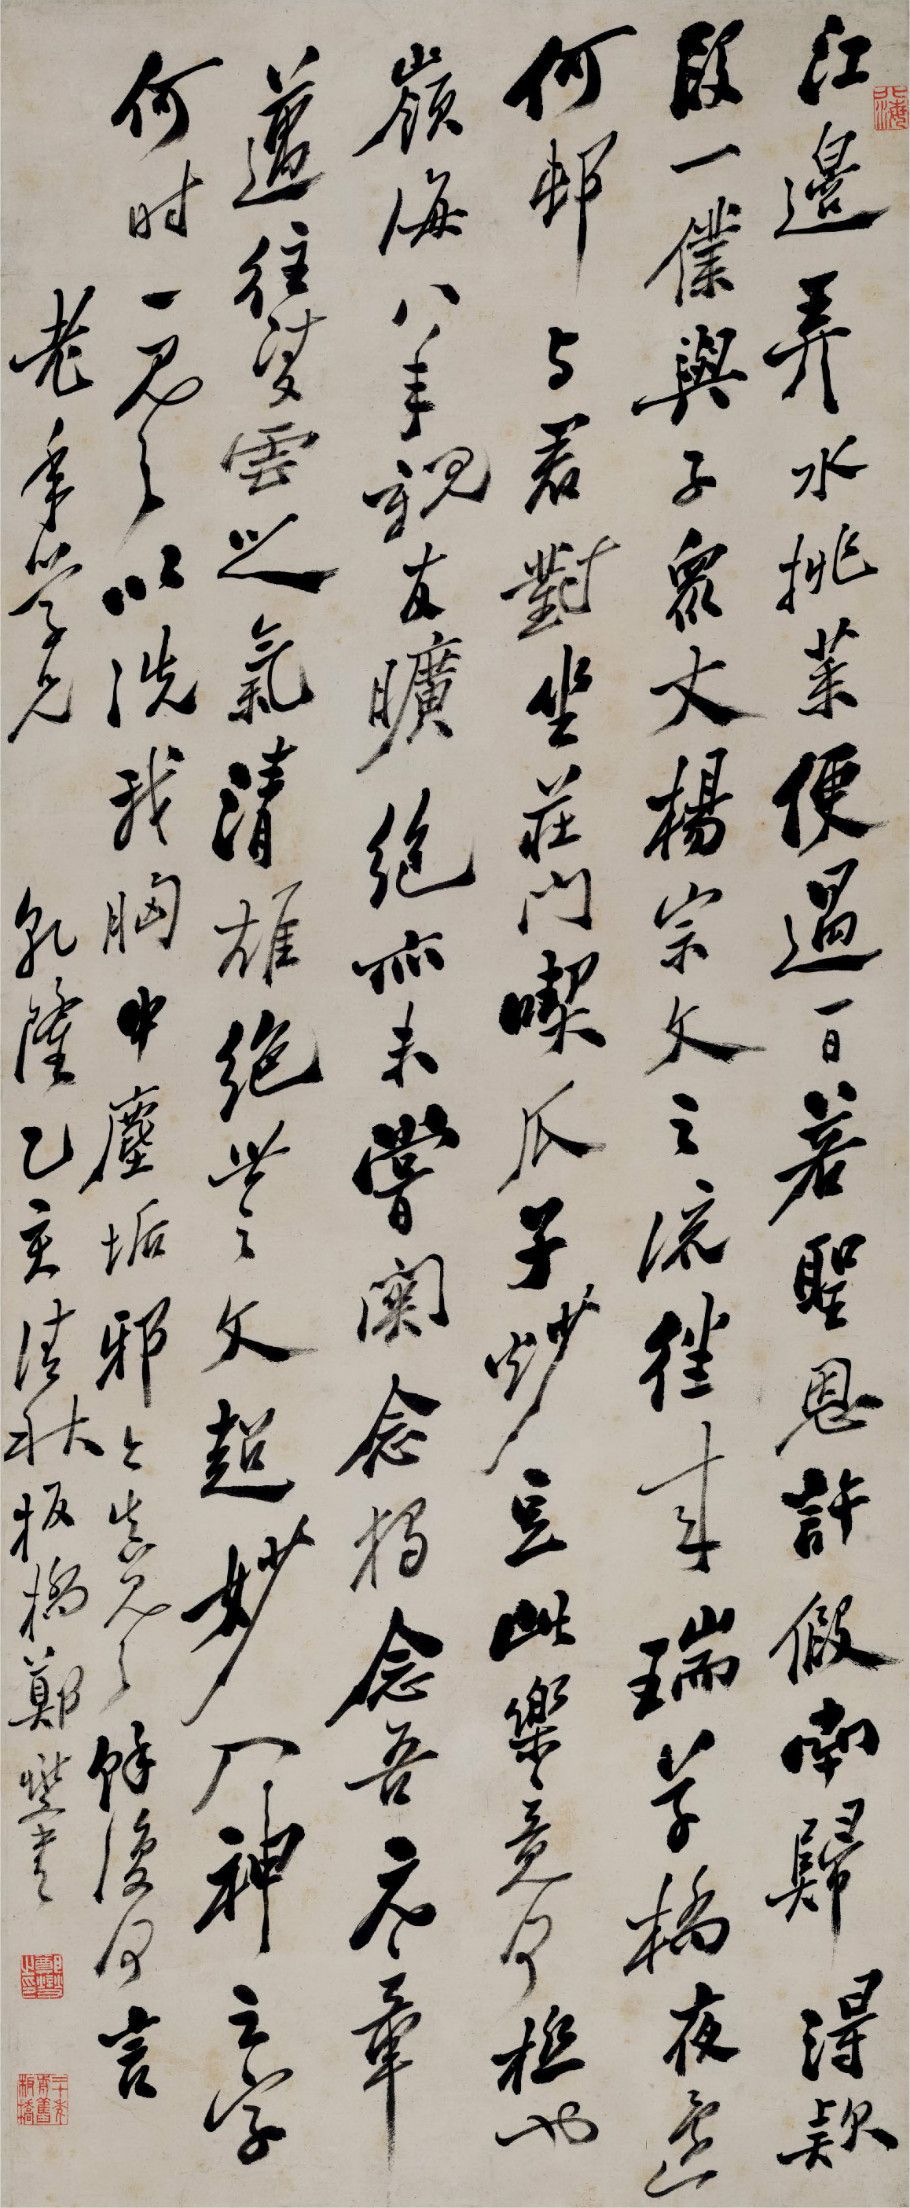 江邊弄水挑菜便過一日若聖恩許假南歸得款
段一僕與子眾丈楊宗文之流往來瑞草橋夜還
何邨与君對坐莊門喫瓜子炒豆此樂竟何極也
嶺海八年親友曠絕亦未嘗關念獨念吾元章
邁往凌雲之氣清雄絕世之文超妙入神之字
何时一見之以洗我胸中塵垢邪今真見之餘復何言
老年學兄 乾隆乙亥清秋板橋鄭燮書
鄭燮之印
二十年前舊板橋